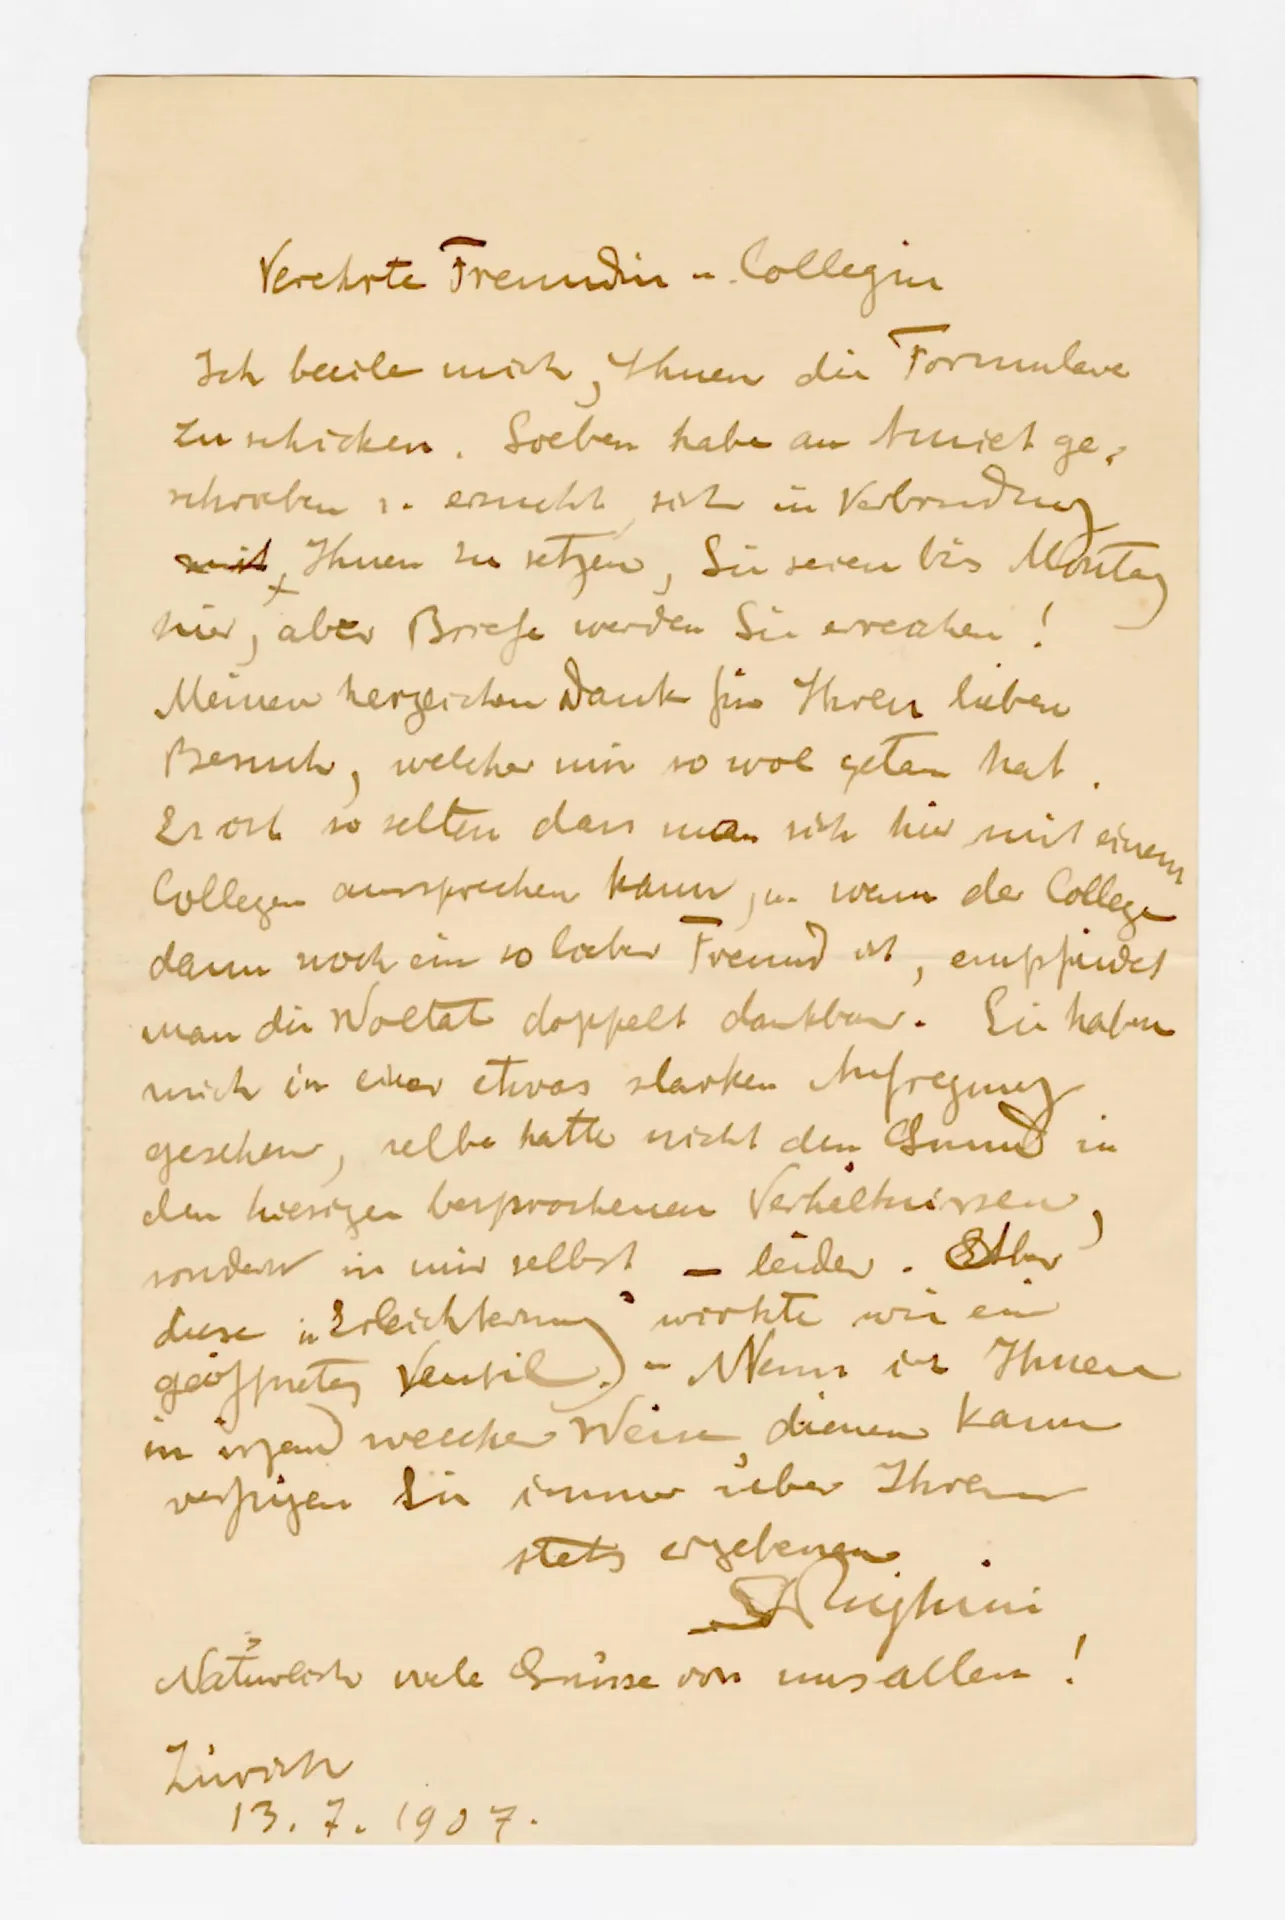 Verehrte Freundin u. Collegin
Ich beeile mich, Ihnen die Formulare
zu schicken. Soeben habe an Amiet ge-
schrieben u. ersucht, sich in Verbindung
mit Ihnen zu setzen, Sie seien bis Montag
hier, aber Briefe werden Sie erreichen!
Meinen herzlichen Dank für Ihren lieben
Besuch, welcher mir so wol getan hat.
Es ist so selten dass man sich hier mit einem
Collegen aussprechen kann, u. wenn der College
dann noch ein so lieber Freund ist, empfindet
man die Woltat doppelt dankbar. Sie haben
mich in einer etwas starken Aufregung
gesehen, selbe hatte nicht den Grund in
den hiesigen besprochenen Verhältnissen,
sondern in mir selbst – leider. Aber
diese „Erleichterung" wirkte wie ein
geöffnetes Ventil. – Wenn ich Ihnen
in irgend welcher Weise dienen kann
verfügen Sie immer über Ihren
stets ergebenen
S Righini
Natürlich viele Grüsse von uns allen!
Zürich
13. 7. 1907.